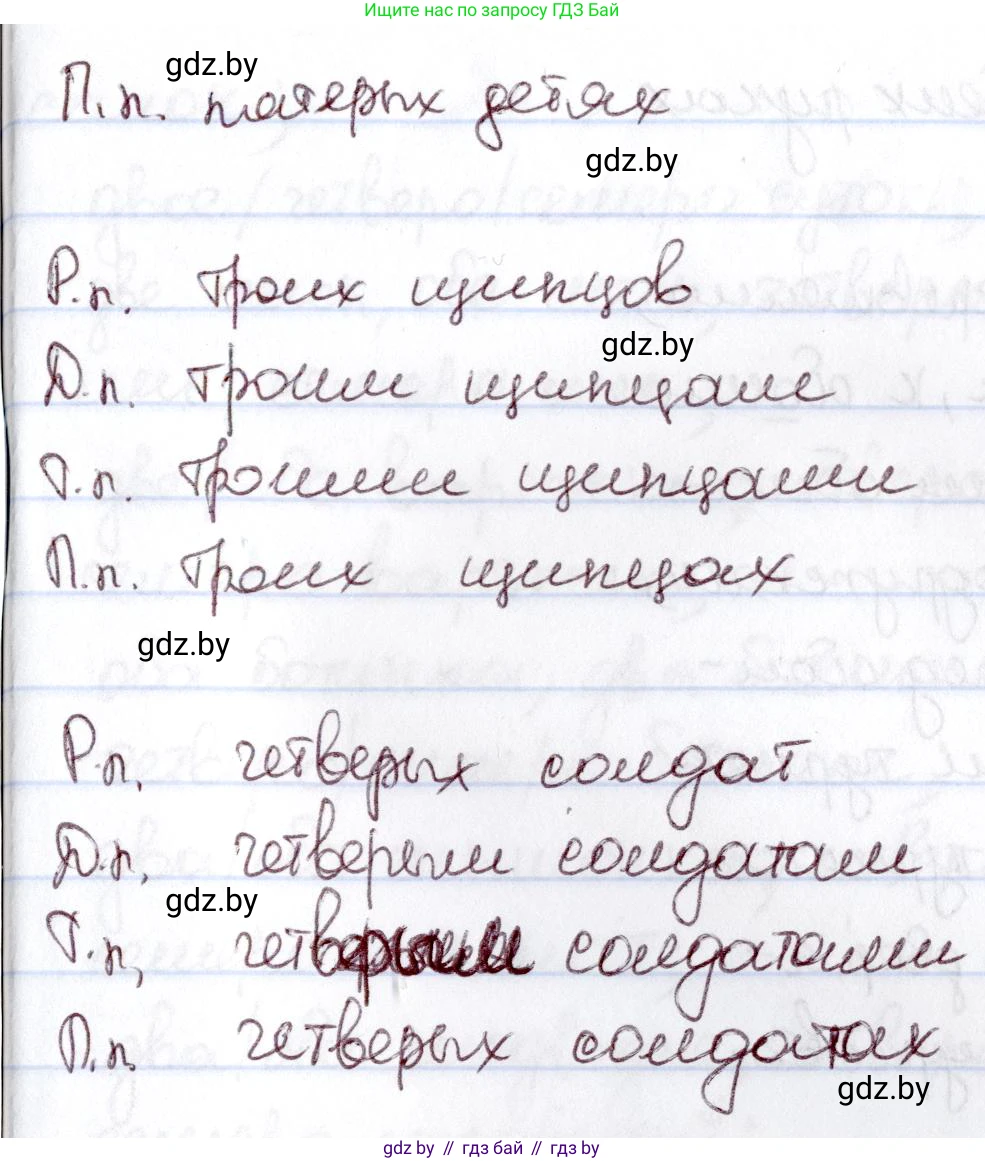 Ищите нас по запросу ГДЗ Бай
gdz.by
П.п. пятерых детях
gdz.by
Р.п. троих щипцов
gdz.by
Д.п. троим щипцам
Т.п. троими щипцами
П.п. троих щипцах
gdz.by
Р.п. четверых солдат
Д.п. четверым солдатам
gdz.by
Т.п. четверыми солдатами
П.п. четверых солдатах
gdz.by
gdz.by // гдз бай // gdz.by